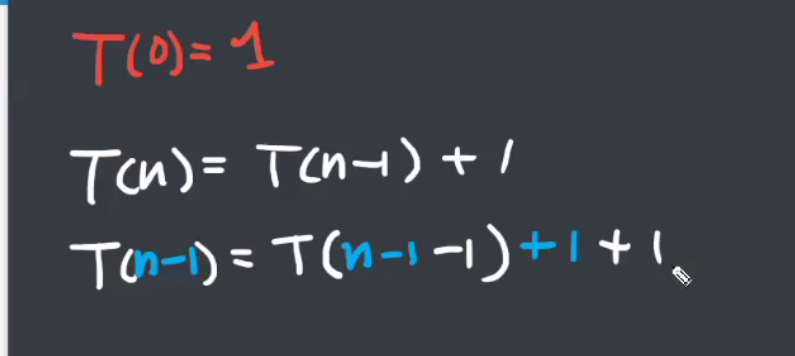 T(0)= 1
T(n)= T(n-1) + 1
T(n-1) = T(n-1-1) +1 + 1